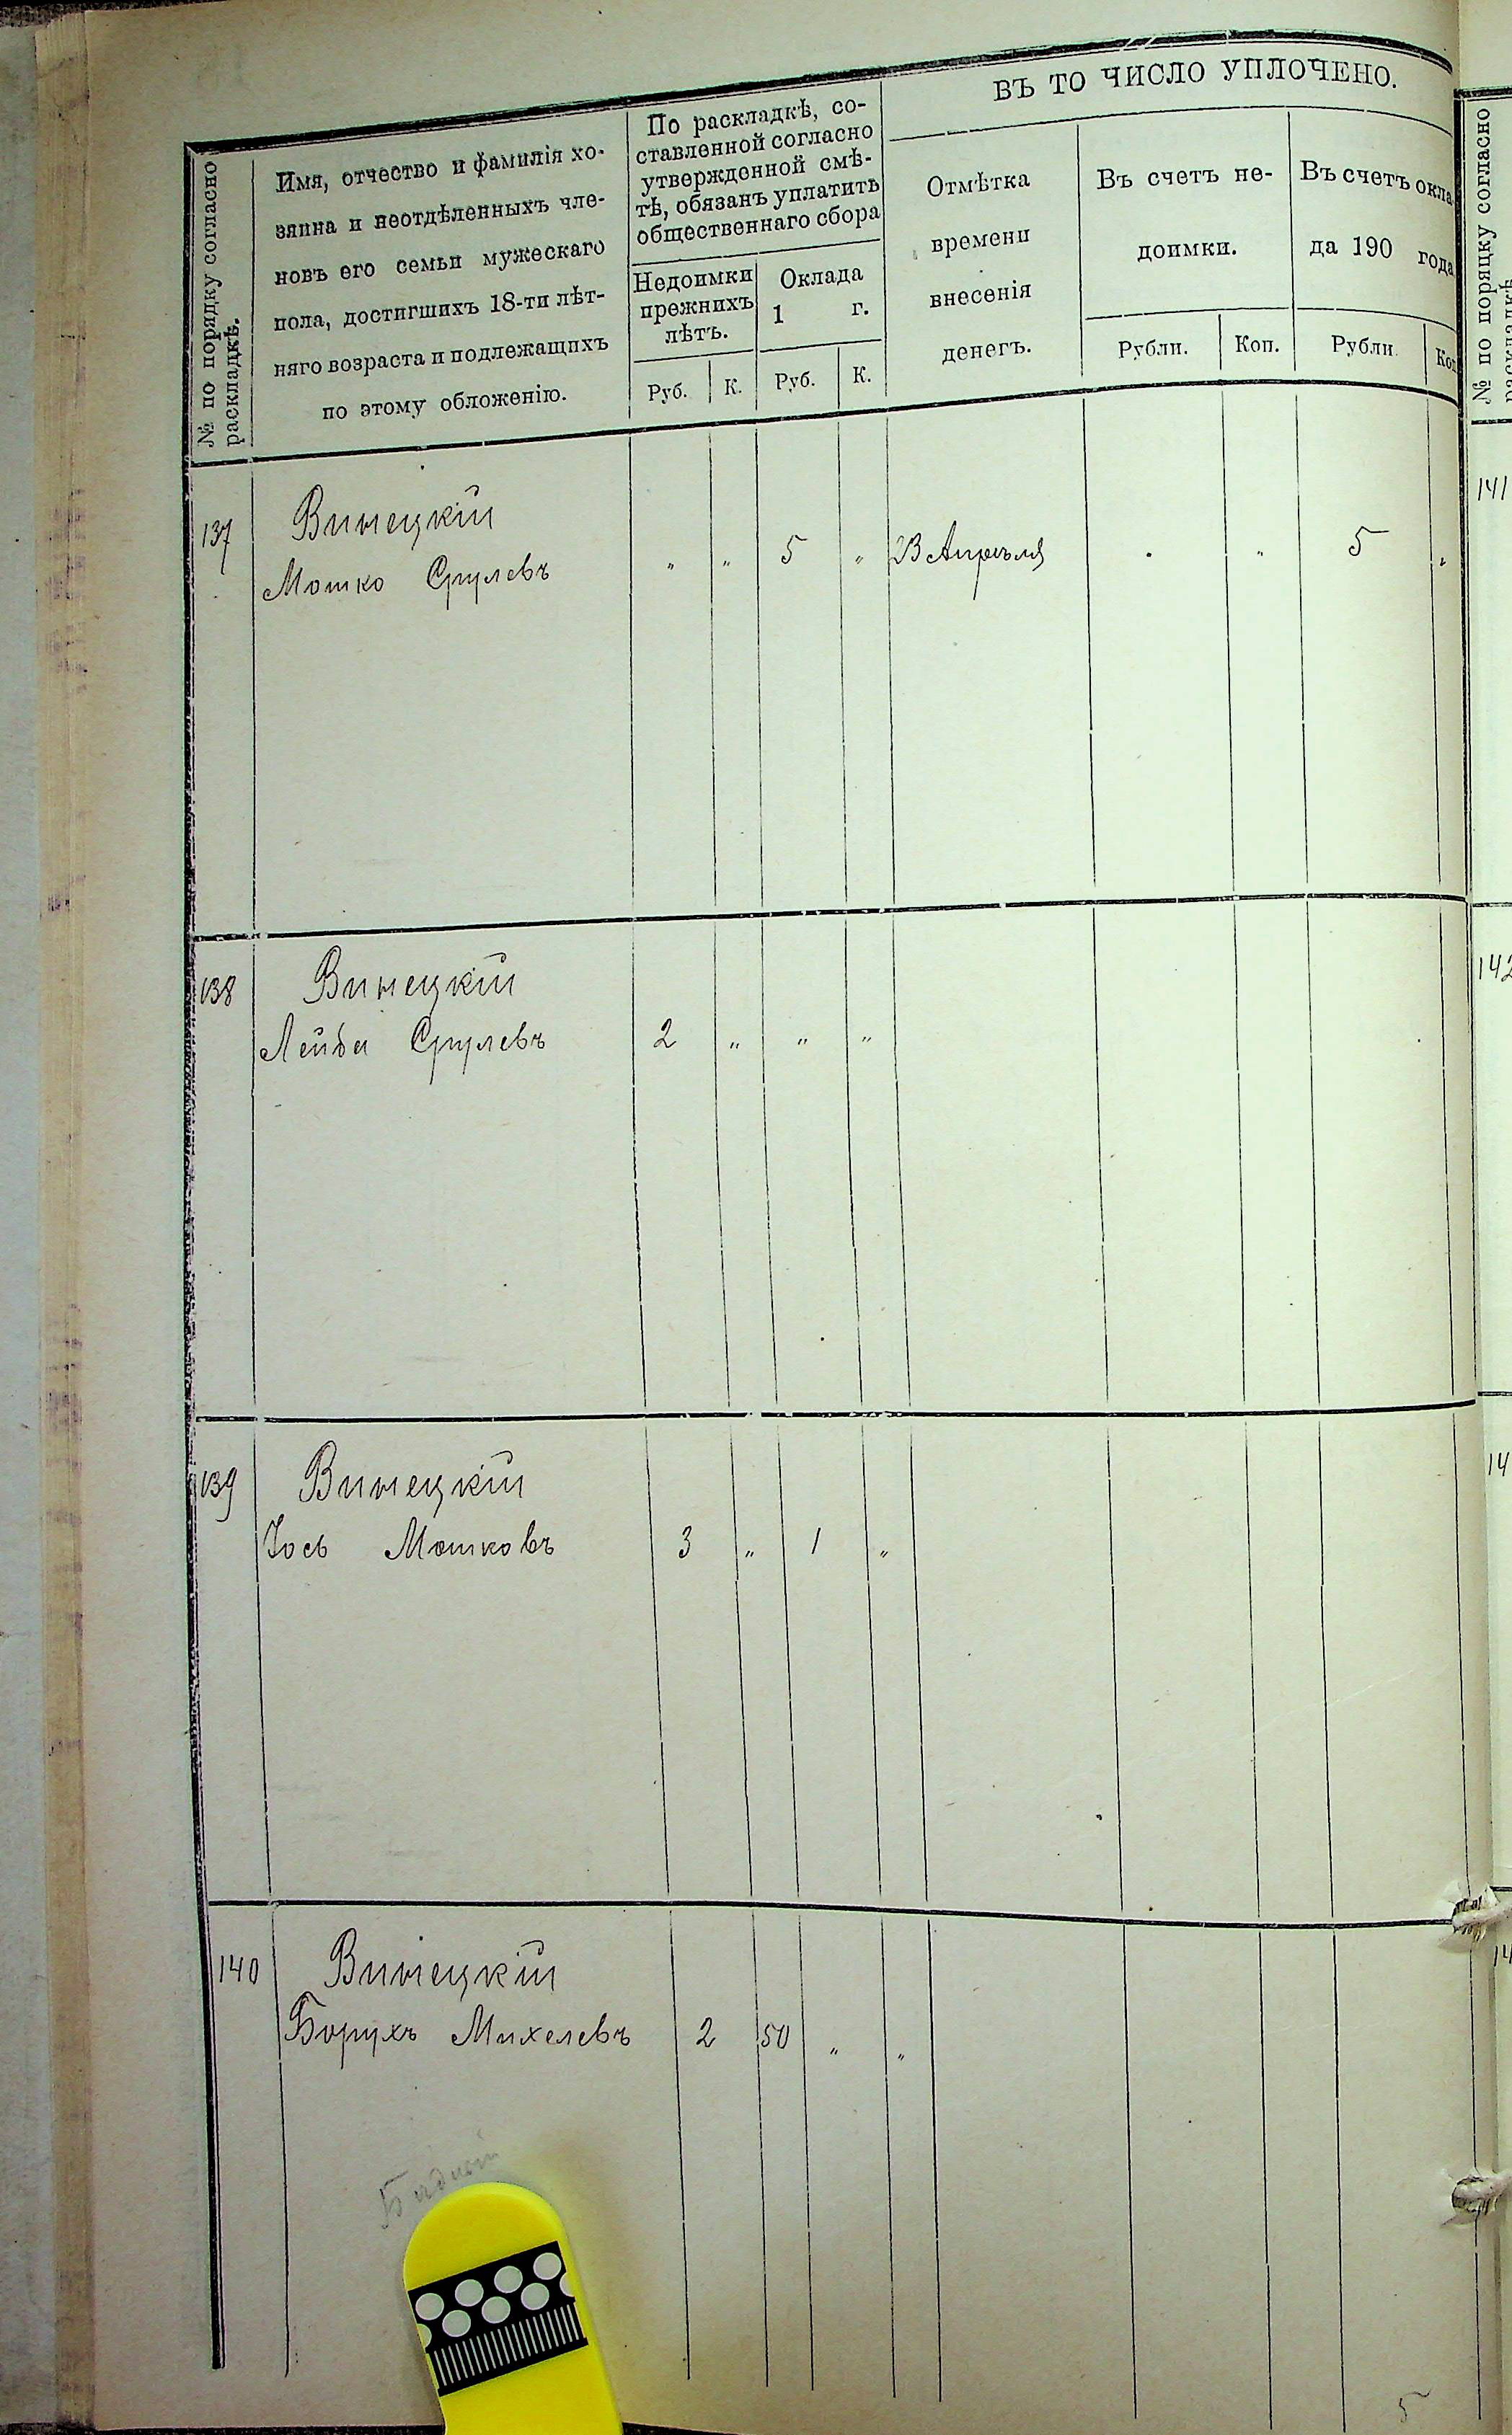 ВЪ ТО ЧИСЛО УПЛОЧЕНО.
№ по порядку согласно
раскладкѣ.
Имя, отчество и фамилія хо-
зяина и неотдѣленныхъ чле-
новъ его семьи мужескаго
пола, достигшихъ 18-ти лѣт-
няго возраста и подлежащихъ
по этому обложенію.
По раскладкѣ, со-
ставленной согласно
утвержденной смѣ-
тѣ, обязанъ уплатить
общественнаго сбора
Недоимки
прежнихъ
лѣтъ.
Оклада
1 г.
Руб. К. Руб. К.
Отмѣтка
времени
внесенія
денегъ.
Въ счетъ не-
доимки.
Рубли. Коп.
Въ счетъ окла-
да 190 года
Рубли. Коп
137 Винецкій
Мошко Срулевъ „ „ 5 „ 23 Апрѣля „ „ 5 „
138 Винецкій
Лейба Срулевъ 2 „ „ „
139 Винецкій
Іось Мошковъ 3 „ 1 „
140 Винецкій
Борухъ Михелевъ 2 50 „ „
5
№ по порядку согласно
раскладкѣ
141
142
14
14